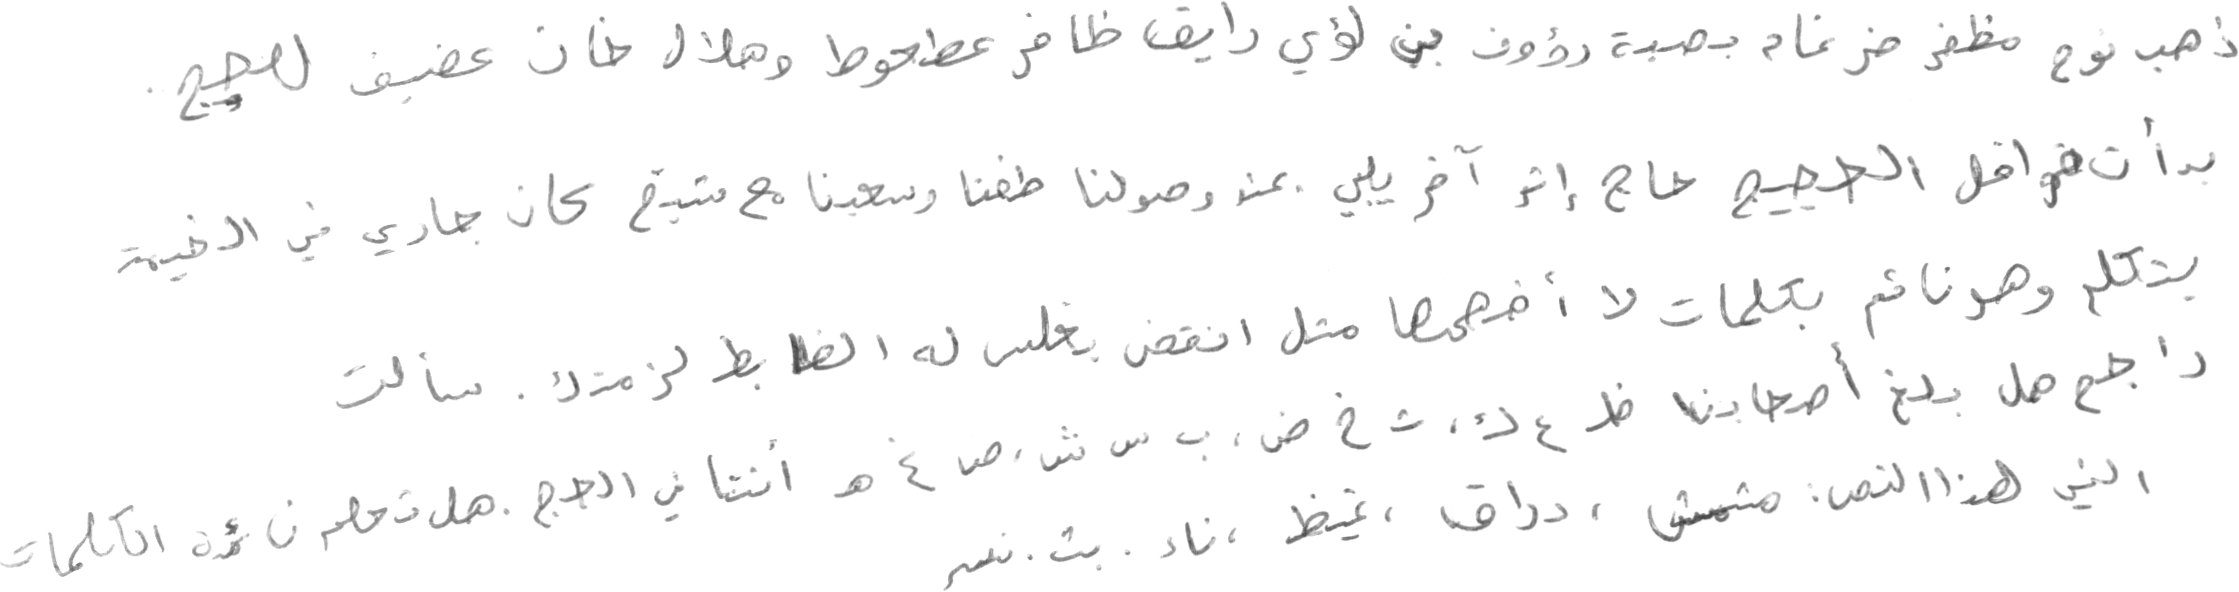 ذهب نوح مظفر ضرغام بصبة رؤوف بن لؤي رايق ظافر عطعوط وهلال خان عفيف للحجيج.
بدأت قوافل الحجيج حاج إثر آخر يلبي. عند وصولنا طفنا وسعينا مع شيخ كان جاري في الخيمة
يتكلم وهو نائم بكلمات لا أفهمها مثل انقض يغلس له الضابط لزمتك. سألت
راجح هل بلغ أصحابنا ظ ع ك، ث خ ض، ب س ش، ص غ هـ أثناء الحج. هل تعلم فائدة الكلمات
التي لهذا النص: مشمش، دراق، غيظ، ناء. بث. نسر